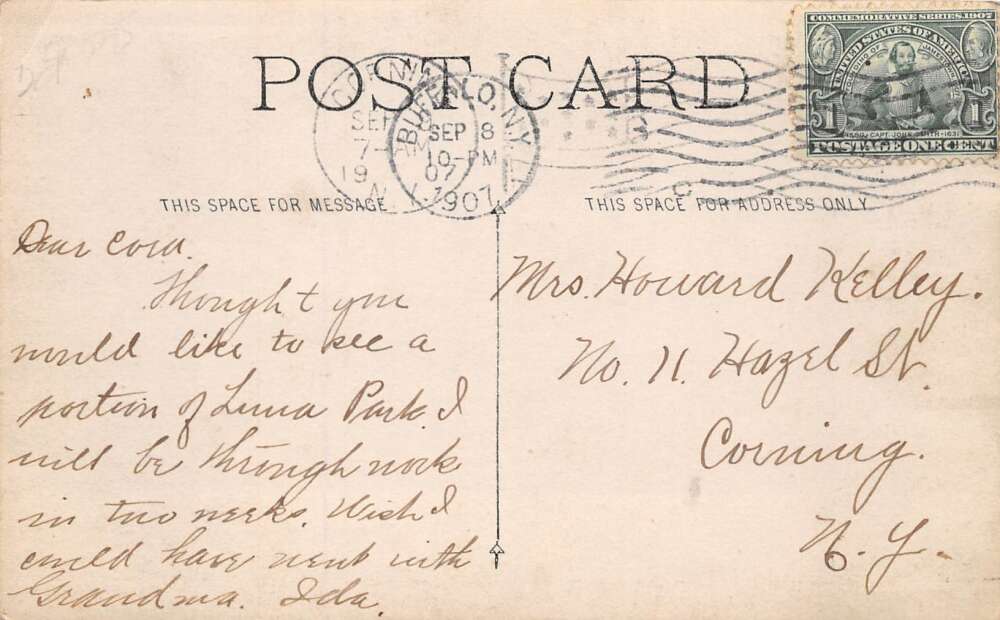 POST CARD
COMMEMORATIVE SERIES, 1907
UNITED STATES OF AMERICA
FOUNDING OF JAMESTOWN
1580, CAPT. JOHN SMITH-1631
1 1
POSTAGE ONE CENT
BUFFALO, N.Y.
SEP 8
10-PM
07
1907
CORNING
SEP
7-
AM
19
N
THIS SPACE FOR MESSAGE
THIS SPACE FOR ADDRESS ONLY
Dear Cora.
Thought you
would like to see a
portion of Luna Park. I
will be through work
in two weeks. Wish I
could have went with
Grandma. Ida.
Mrs. Howard Kelley.
No. 11. Hazel St.
Corning.
N. Y.